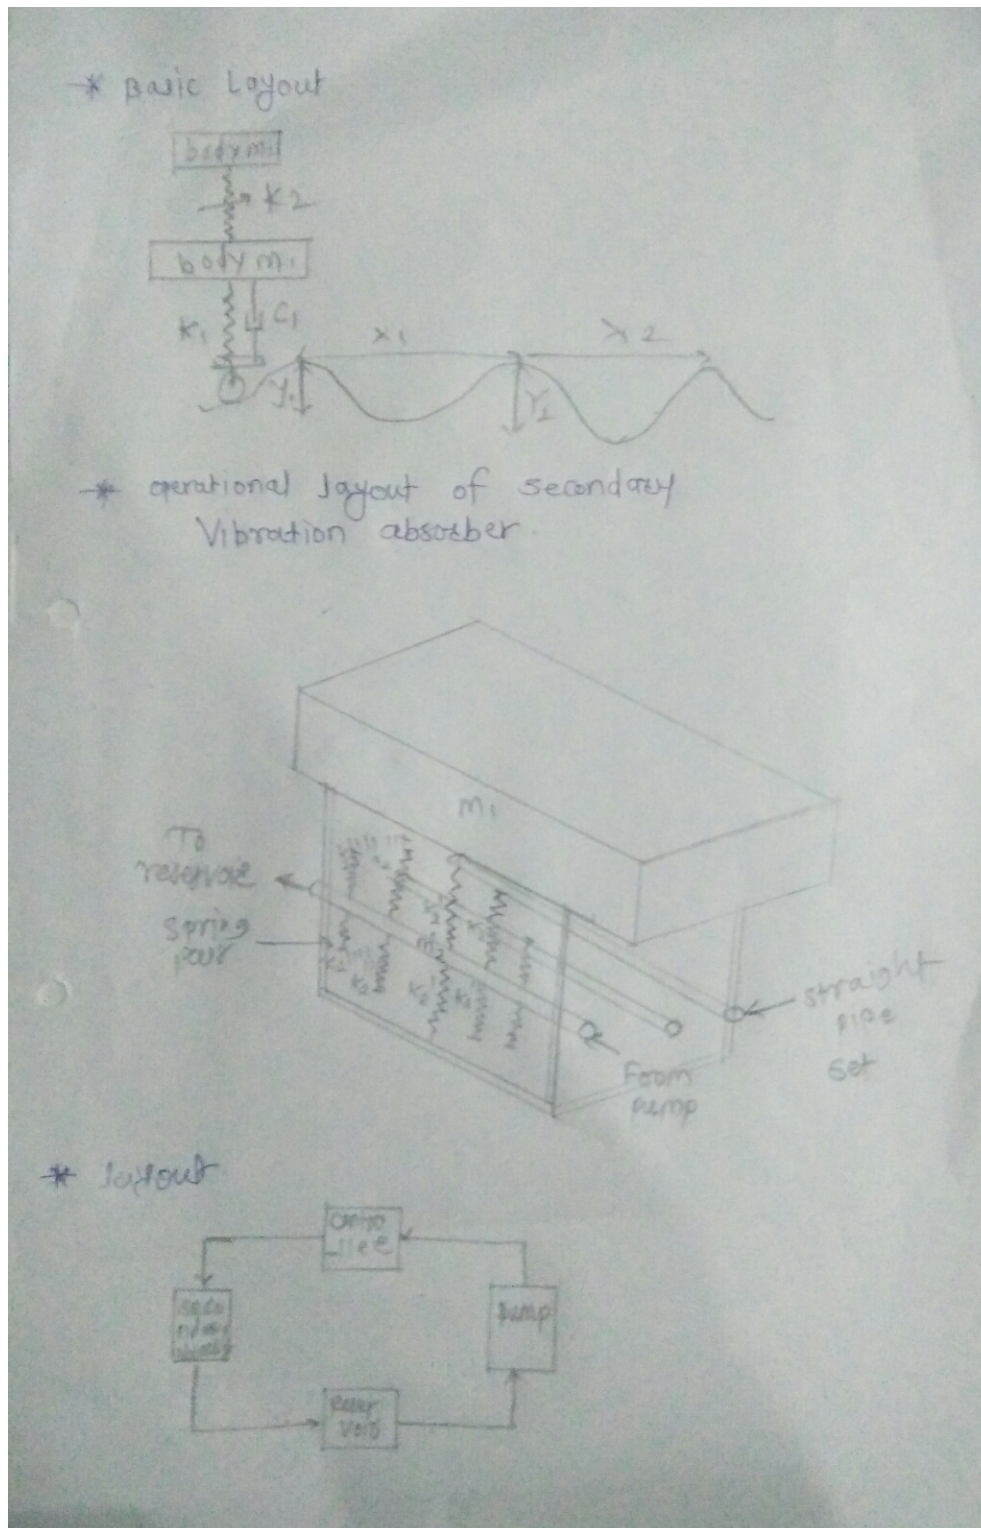 * Basic Layout
body m1
K2
body m1
K1
C1
λ1
λ2
y1
Y2
* operational layout of secondary
Vibration absorber.
m1
To
reservoir
spring
pair
K2
K2
K2
straight
pipe
set
From
pump
* layout
contro
-ller
pump